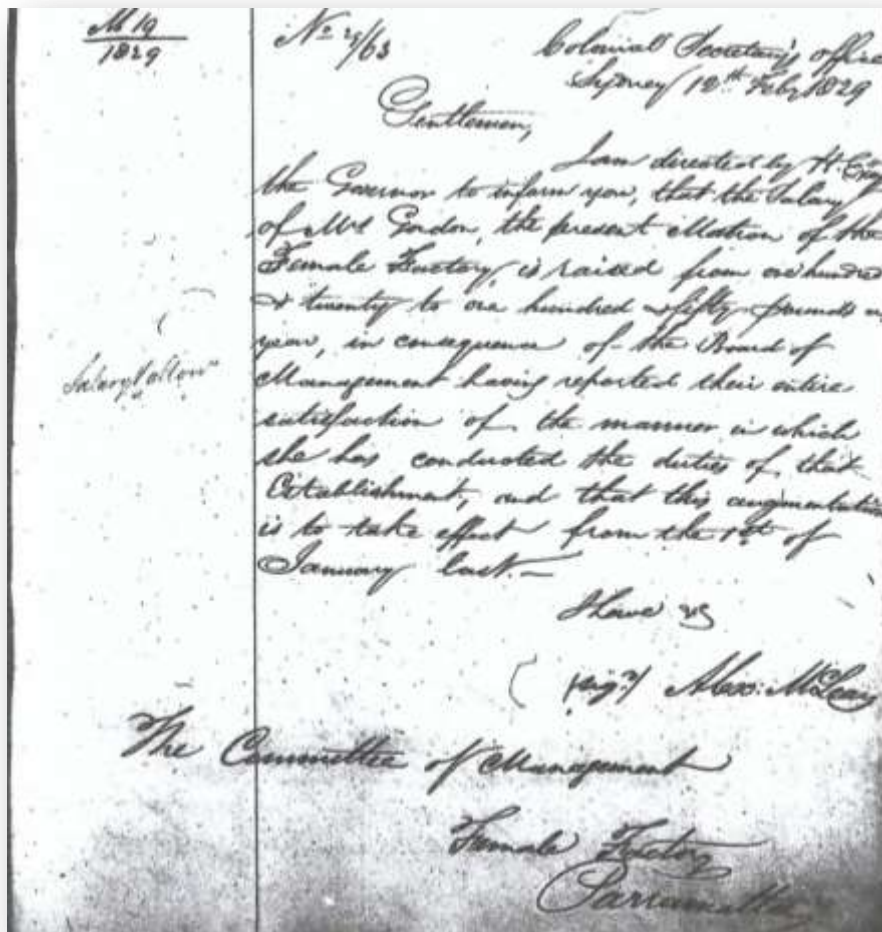 M 19
1829
No 29/63
Colonial Secretary's office
Sydney 12th Feby 1829
Gentlemen,
I am directed by H. Exy
the Governor to inform you, that the Salary
of Mrs Gordon, the present Matron of the
Female Factory, is raised from one hundred
& twenty to one hundred & fifty pounds a
year, in consequence of the Board of
Management having reported their entire
satisfaction of the manner in which
she has conducted the duties of that
Establishment, and that this augmentation
is to take effect from the 1st of
January last.—
Salary
I have &c
(sigd) Alex: McLeay
The Committee of Management
Female Factory
Parramatta